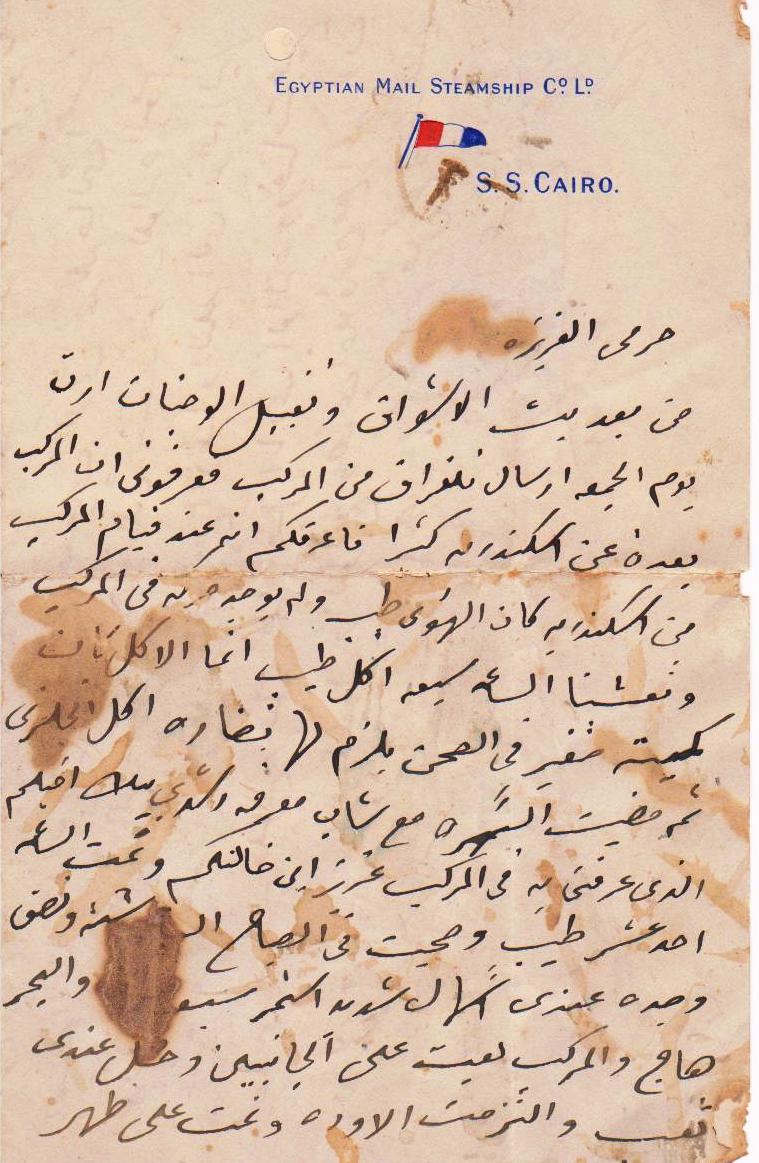 EGYPTIAN MAIL STEAMSHIP Cº Lº
S. S. CAIRO.
حرمى العزيزه
من بعد بث الاشواق وتقبيل الوجنات اردت
يوم الجمعه ارسال تلغراف من المركب فعرفونى ان المركب
بعدة عن اسكندريه كثيرا فاعرفكم انه عند قيام المركب
من اسكندريه كان الهوى طيب ولم يوجد فى المركب
وتعشينا الساعه سبعه اكل طيب انما الاكل
كميته صغير فى الصحن يلزم لها اكل انجليزى
ثم مضيت السهره مع شاب معرفة بيك
الذى عرفنى به فى المركب عزيز ابن خالتكم ونمت الساعه
احد عشر طيب وصحيت فى الصباح ونصف
وجده عندى اسهال شديد استمر والبحر
هاج والمركب لعبت على الجانبين وحصل عندى
تعب والتزمت الاوده ونمت على ظهر